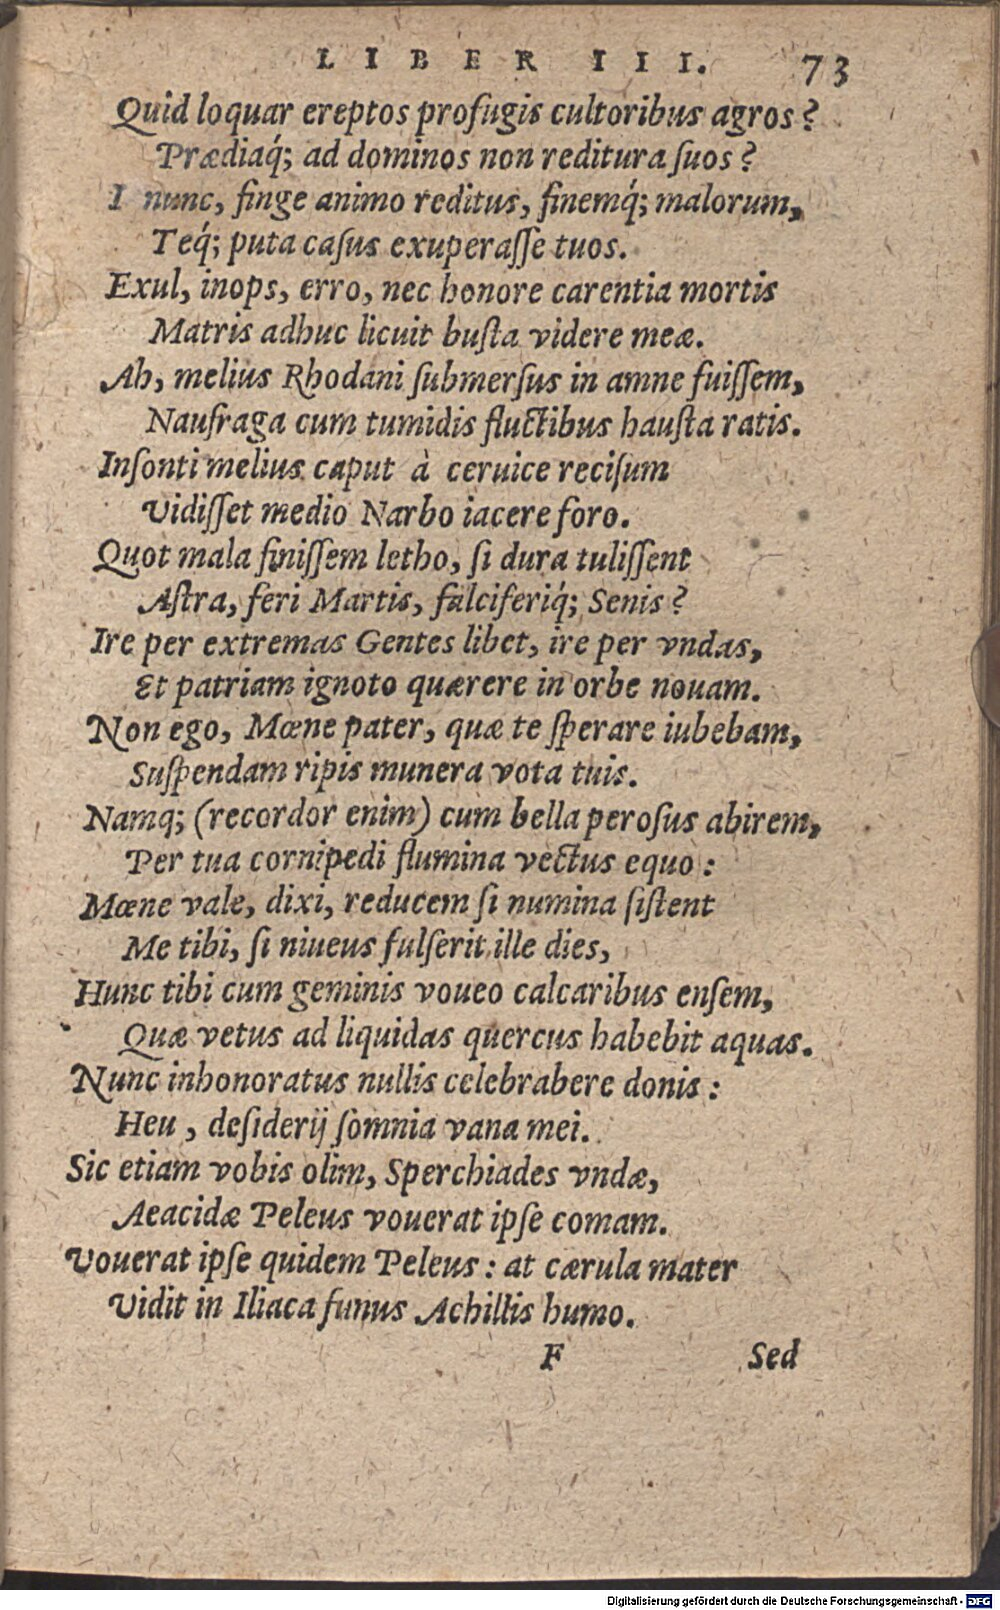 LIBER III. 73
Quid loquar ereptos profugis cultoribus agros?
Prædiaq́; ad dominos non reditura ſuos?
I nunc, finge animo reditus, finemq́; malorum,
Teq́; puta caſus exuperaſſe tuos.
Exul, inops, erro, nec honore carentia mortis
Matris adhuc licuit buſta videre meæ.
Ah, melius Rhodani ſubmerſus in amne fuiſſem,
Naufraga cum tumidis fluctibus hauſta ratis.
Inſonti melius caput à ceruice reciſum
Vidiſſet medio Narbo iacere foro.
Quot mala finiſſem letho, ſi dura tuliſſent
Aſtra, feri Martis, falciferiq́; Senis?
Ire per extremas Gentes libet, ire per vndas,
Et patriam ignoto quærere in orbe nouam.
Non ego, Mœne pater, quæ te ſperare iubebam,
Suſpendam ripis munera vota tuis.
Namq; (recordor enim) cum bella peroſus abirem,
Per tua cornipedi flumina vectus equo:
Mœne vale, dixi, reducem ſi numina ſiſtent
Me tibi, ſi niueus fulſerit ille dies,
Hunc tibi cum geminis voueo calcaribus enſem,
Quæ vetus ad liquidas quercus habebit aquas.
Nunc inhonoratus nullis celebrabere donis:
Heu, deſiderij ſomnia vana mei.
Sic etiam vobis olim, Sperchiades vndæ,
Aeacidæ Peleus vouerat ipſe comam.
Vouerat ipſe quidem Peleus: at cærula mater
Vidit in Iliaca funus Achillis humo.
F Sed
Digitalisierung gefördert durch die Deutsche Forschungsgemeinschaft - DFG